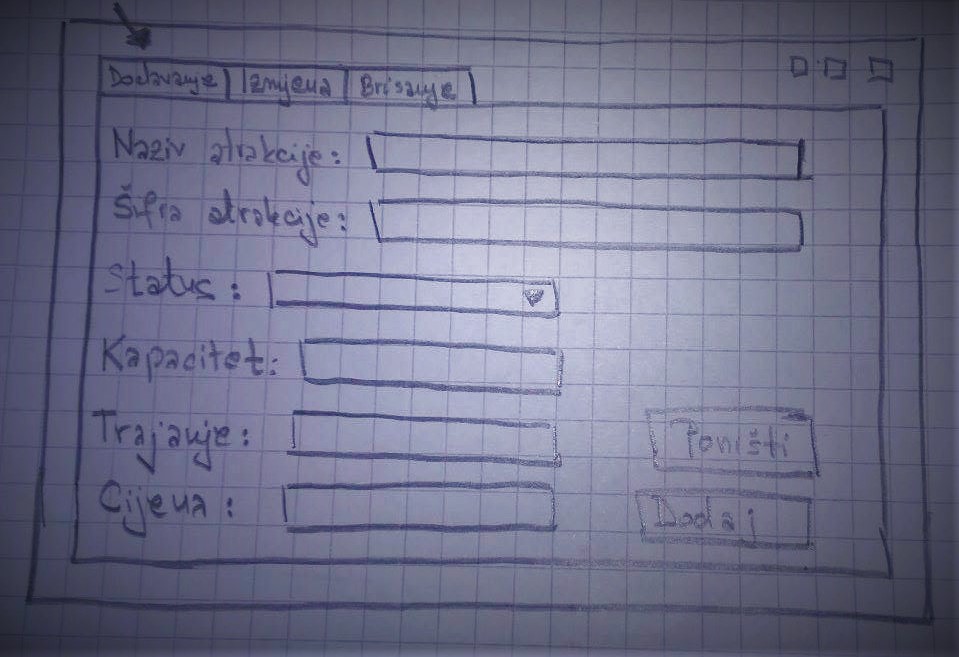 Dodavanje Izmjena Brisanje
Naziv atrakcije:
Šifra atrakcije:
Status:
Kapacitet:
Trajanje:
Poništi
Cijena:
Dodaj